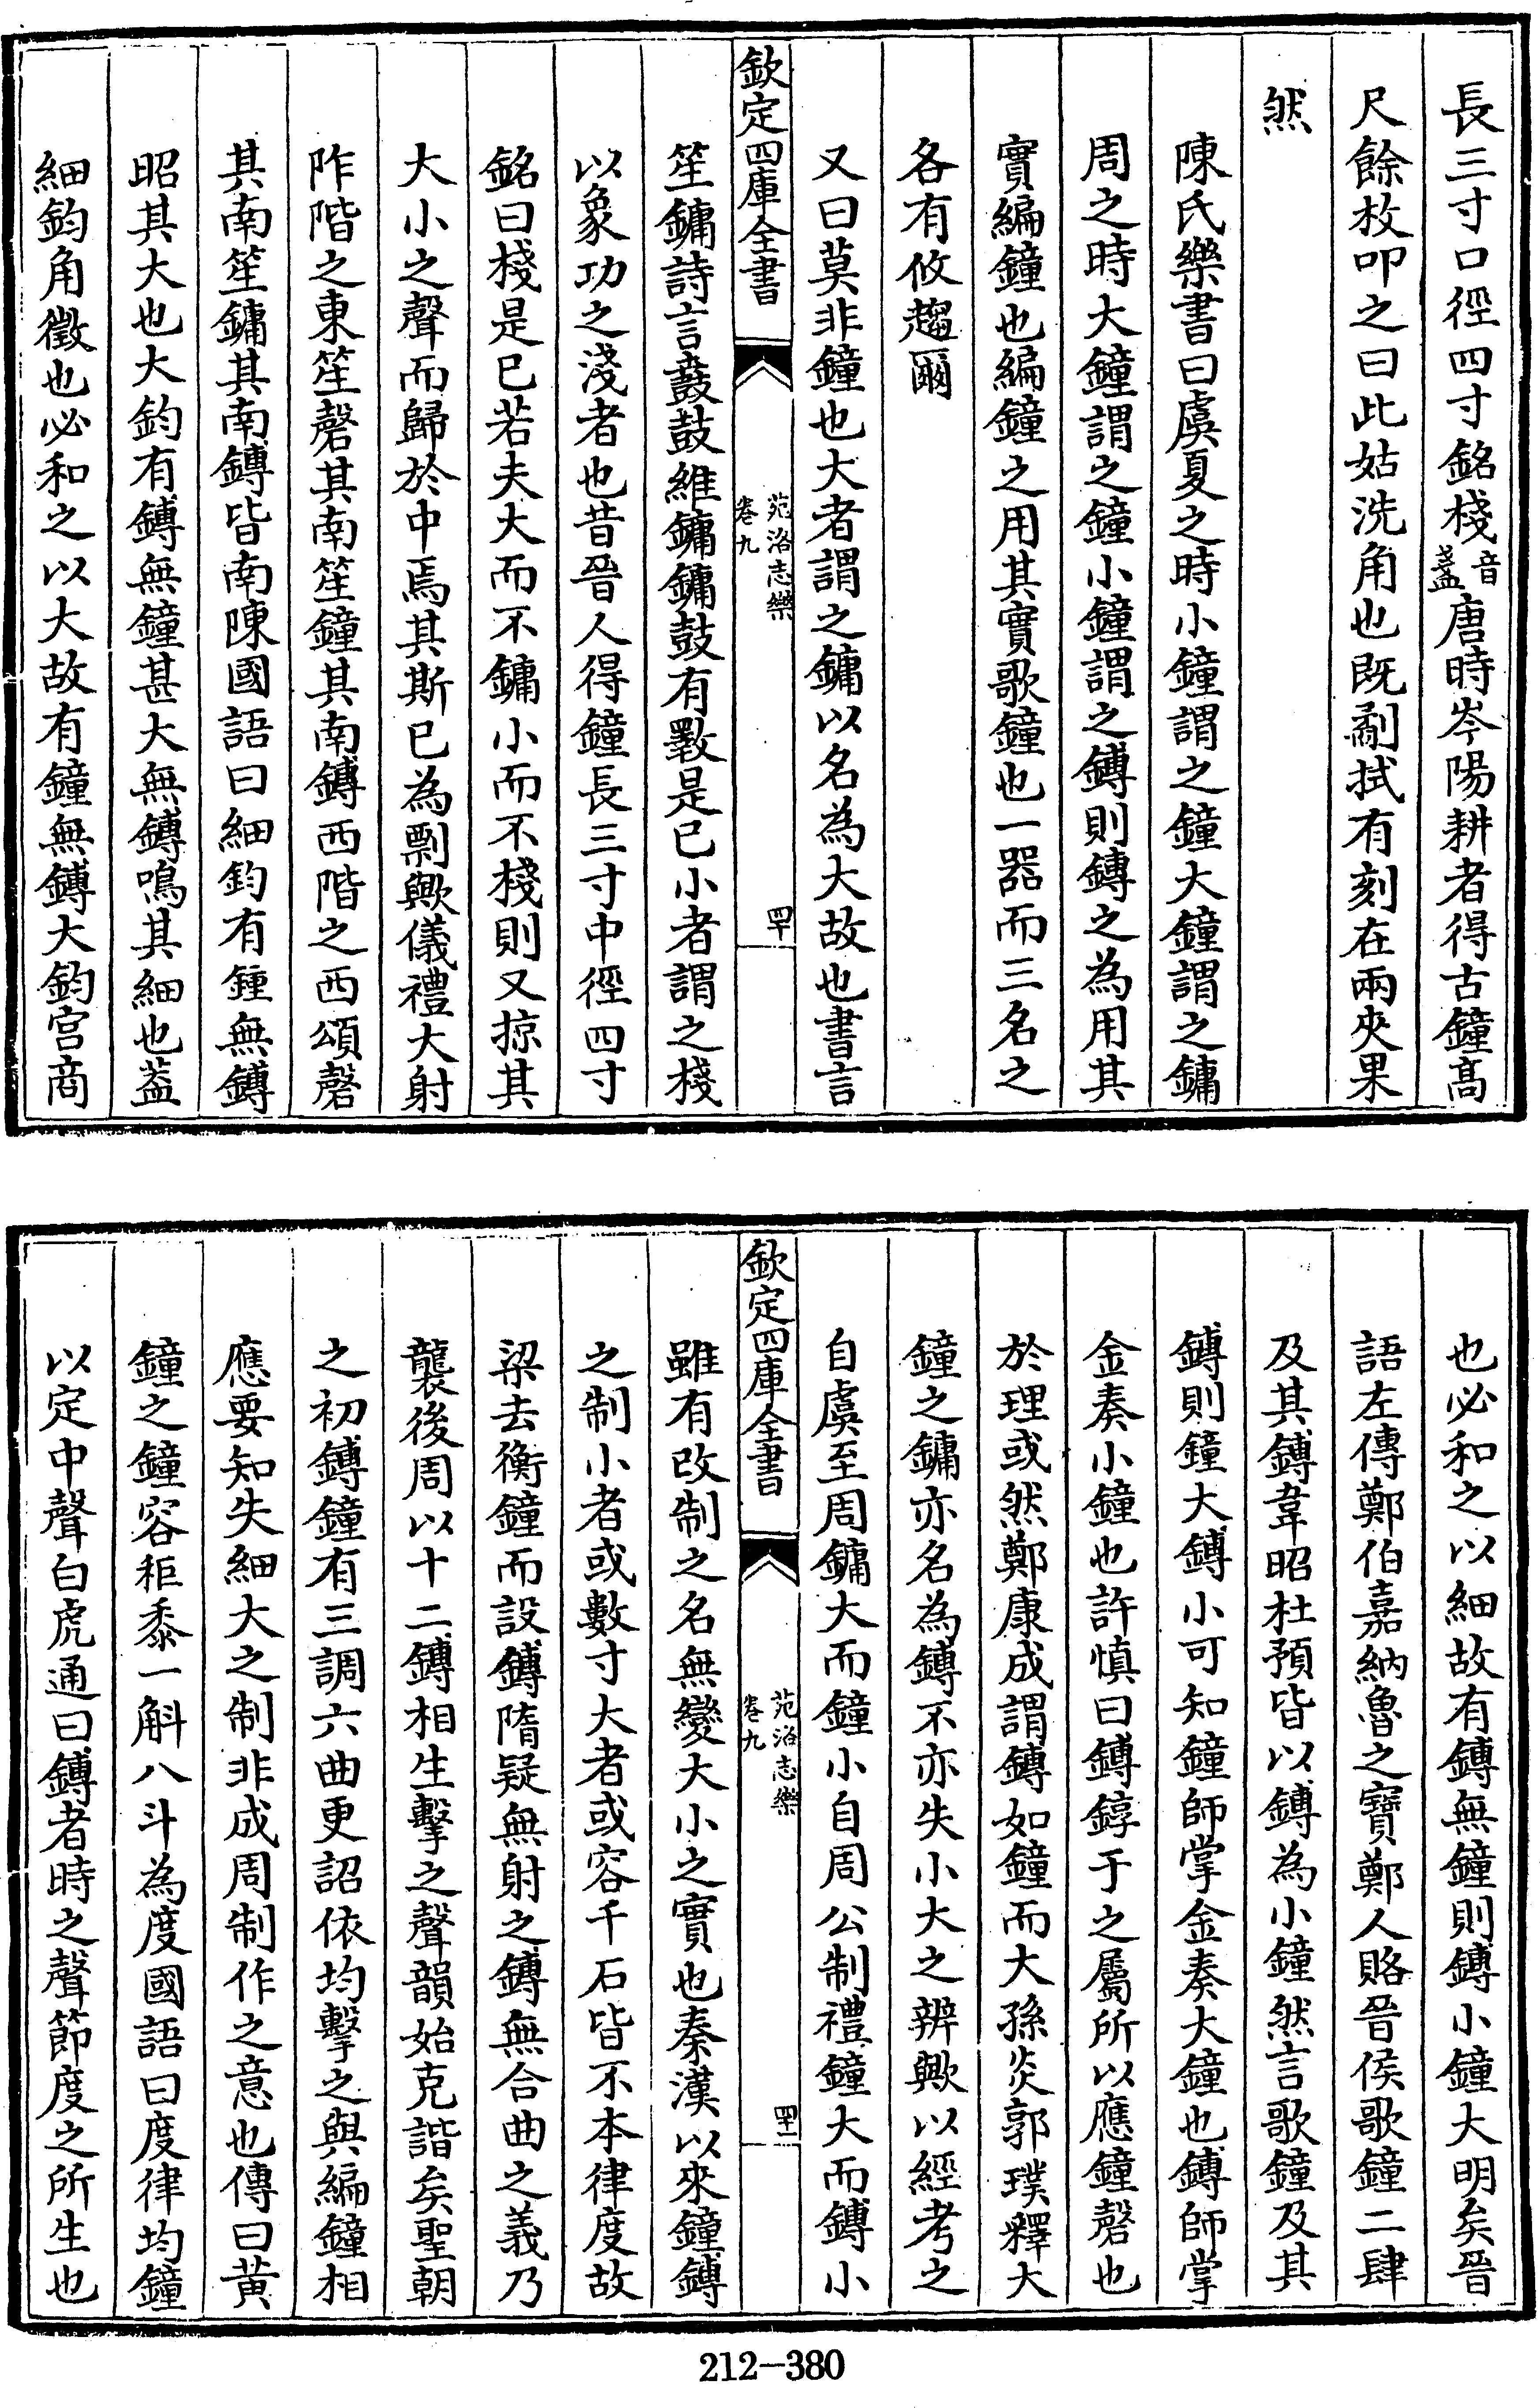 長三寸口徑四寸銘棧音盞唐時岑陽耕者得古鐘髙
尺餘枚叩之曰此姑洗角也既劀拭有刻在兩夾果
然
陳氏樂書曰虞夏之時小鐘謂之鐘大鐘謂之鏞
周之時大鐘謂之鐘小鐘謂之鎛則鎛之為用其
實編鐘也編鐘之用其實歌鐘也一器而三名之
各有攸趨爾
又曰莫非鐘也大者謂之鏞以名為大故也書言
欽定四庫全書
苑洛志樂
卷九
四十
笙鏞詩言鼖鼓維鏞鏞鼓有斁是已小者謂之棧
以象功之淺者也昔晉人得鐘長三寸中徑四寸
銘曰棧是已若夫大而不鏞小而不棧則又掠其
大小之聲而歸於中焉其斯已為剽歟儀禮大射
阼階之東笙磬其南笙鐘其南鎛西階之西頌磬
其南笙鏞其南鎛皆南陳國語曰細鈞有鍾無鎛
昭其大也大鈞有鎛無鐘甚大無鎛鳴其細也葢
細鈞角徵也必和之以大故有鐘無鎛大鈞宮商
也必和之以細故有鎛無鐘則鎛小鐘大明矣晉
語左傳鄭伯嘉納魯之寶鄭人賂晉侯歌鐘二肆
及其鎛韋昭杜預皆以鎛為小鐘然言歌鐘及其
鎛則鐘大鎛小可知鐘師掌金奏大鐘也鎛師掌
金奏小鐘也許慎曰鎛錞于之屬所以應鐘磬也
於理或然鄭康成謂鎛如鐘而大孫炎郭璞釋大
鐘之鏞亦名為鎛不亦失小大之辨歟以經考之
自虞至周鏞大而鐘小自周公制禮鐘大而鎛小
欽定四庫全書
苑洛志樂
卷九
四十一
雖有改制之名無變大小之實也秦漢以來鐘鎛
之制小者或數寸大者或容千石皆不本律度故
梁去衡鐘而設鎛隋疑無射之鎛無合曲之義乃
襲後周以十二鎛相生擊之聲韻始克諧矣聖朝
之初鎛鐘有三調六曲更詔依均擊之與編鐘相
應要知失細大之制非成周制作之意也傳曰黄
鐘之鐘容秬黍一斛八斗為度國語曰度律均鐘
以定中聲白虎通曰鎛者時之聲節度之所生也
212-380